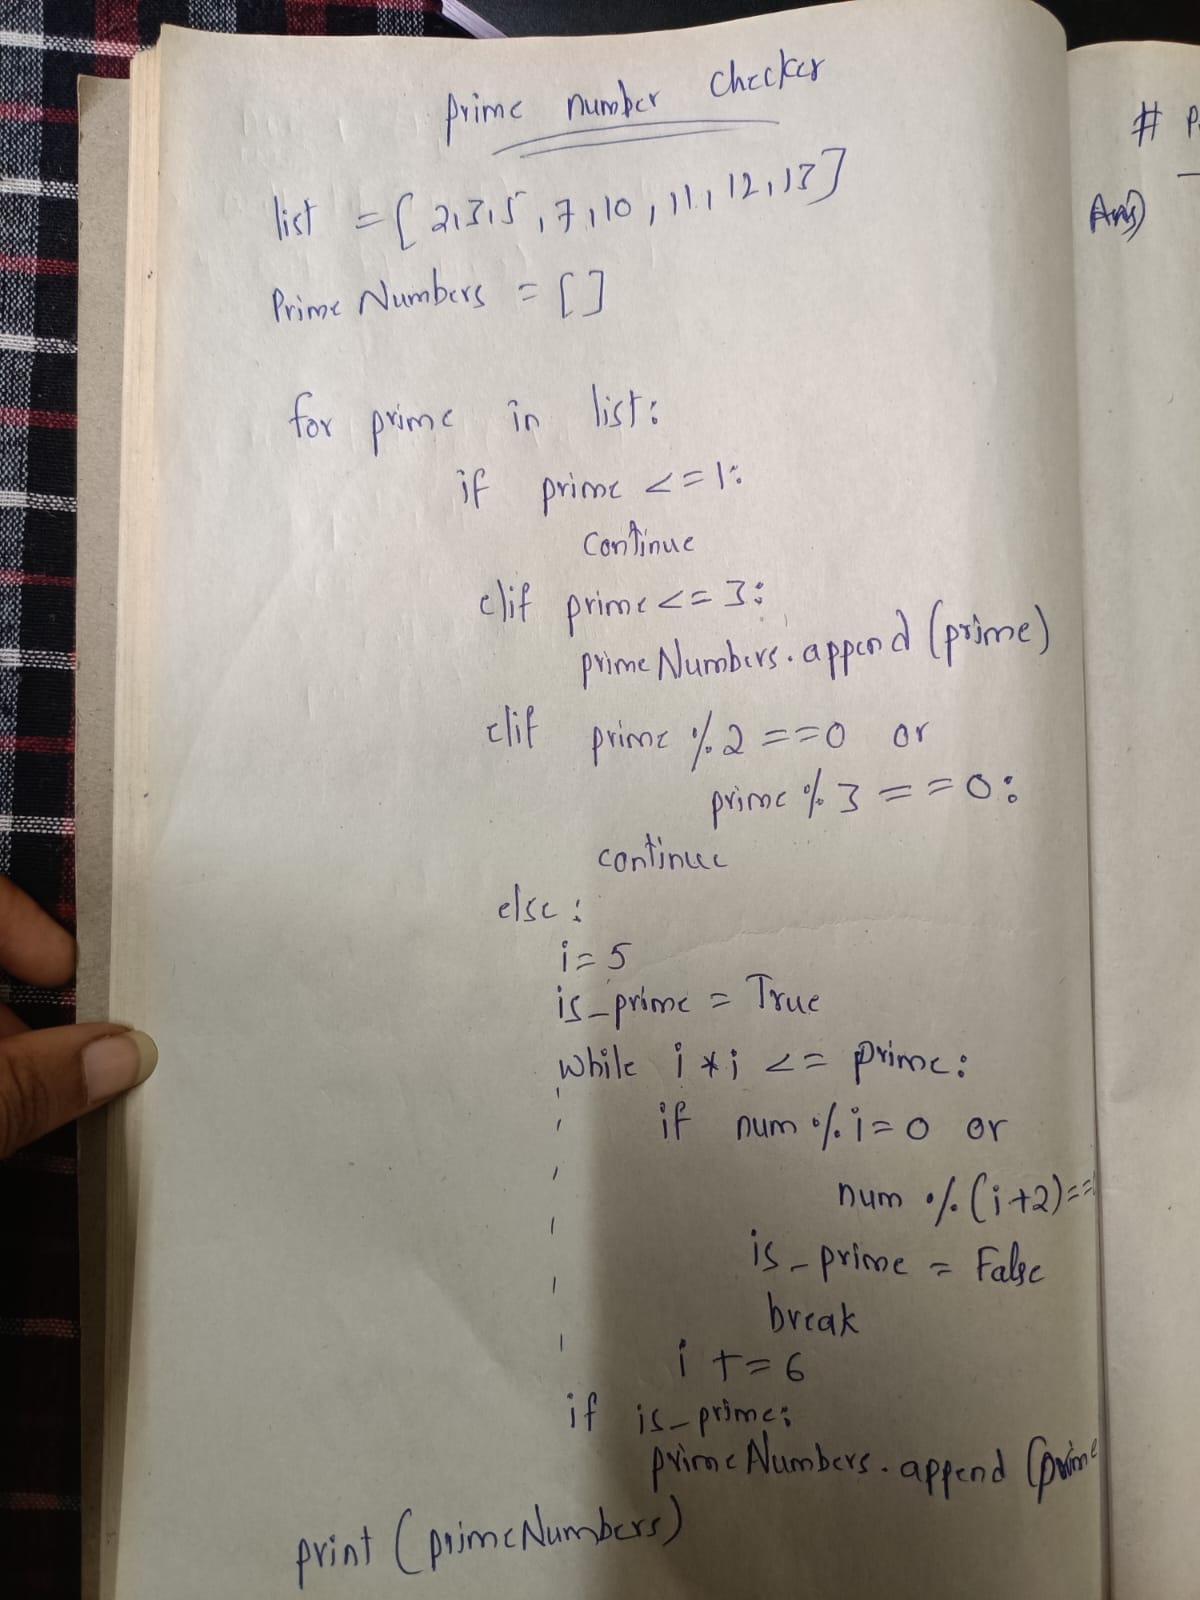 prime number checker
list = [2,3,5,7,10,11,12,13]
Prime Numbers = []
for prime in list:
if prime <= 1:
continue
elif prime <= 3:
prime Numbers.append(prime)
elif prime % 2 == 0 or
prime % 3 == 0:
continue
else:
i = 5
is_prime = True
while i * i <= prime:
if num % i = 0 or
num % (i+2) ==
is_prime = False
break
i += 6
if is_prime:
prime Numbers.append(prime
print (primeNumbers)
# P
Ans)